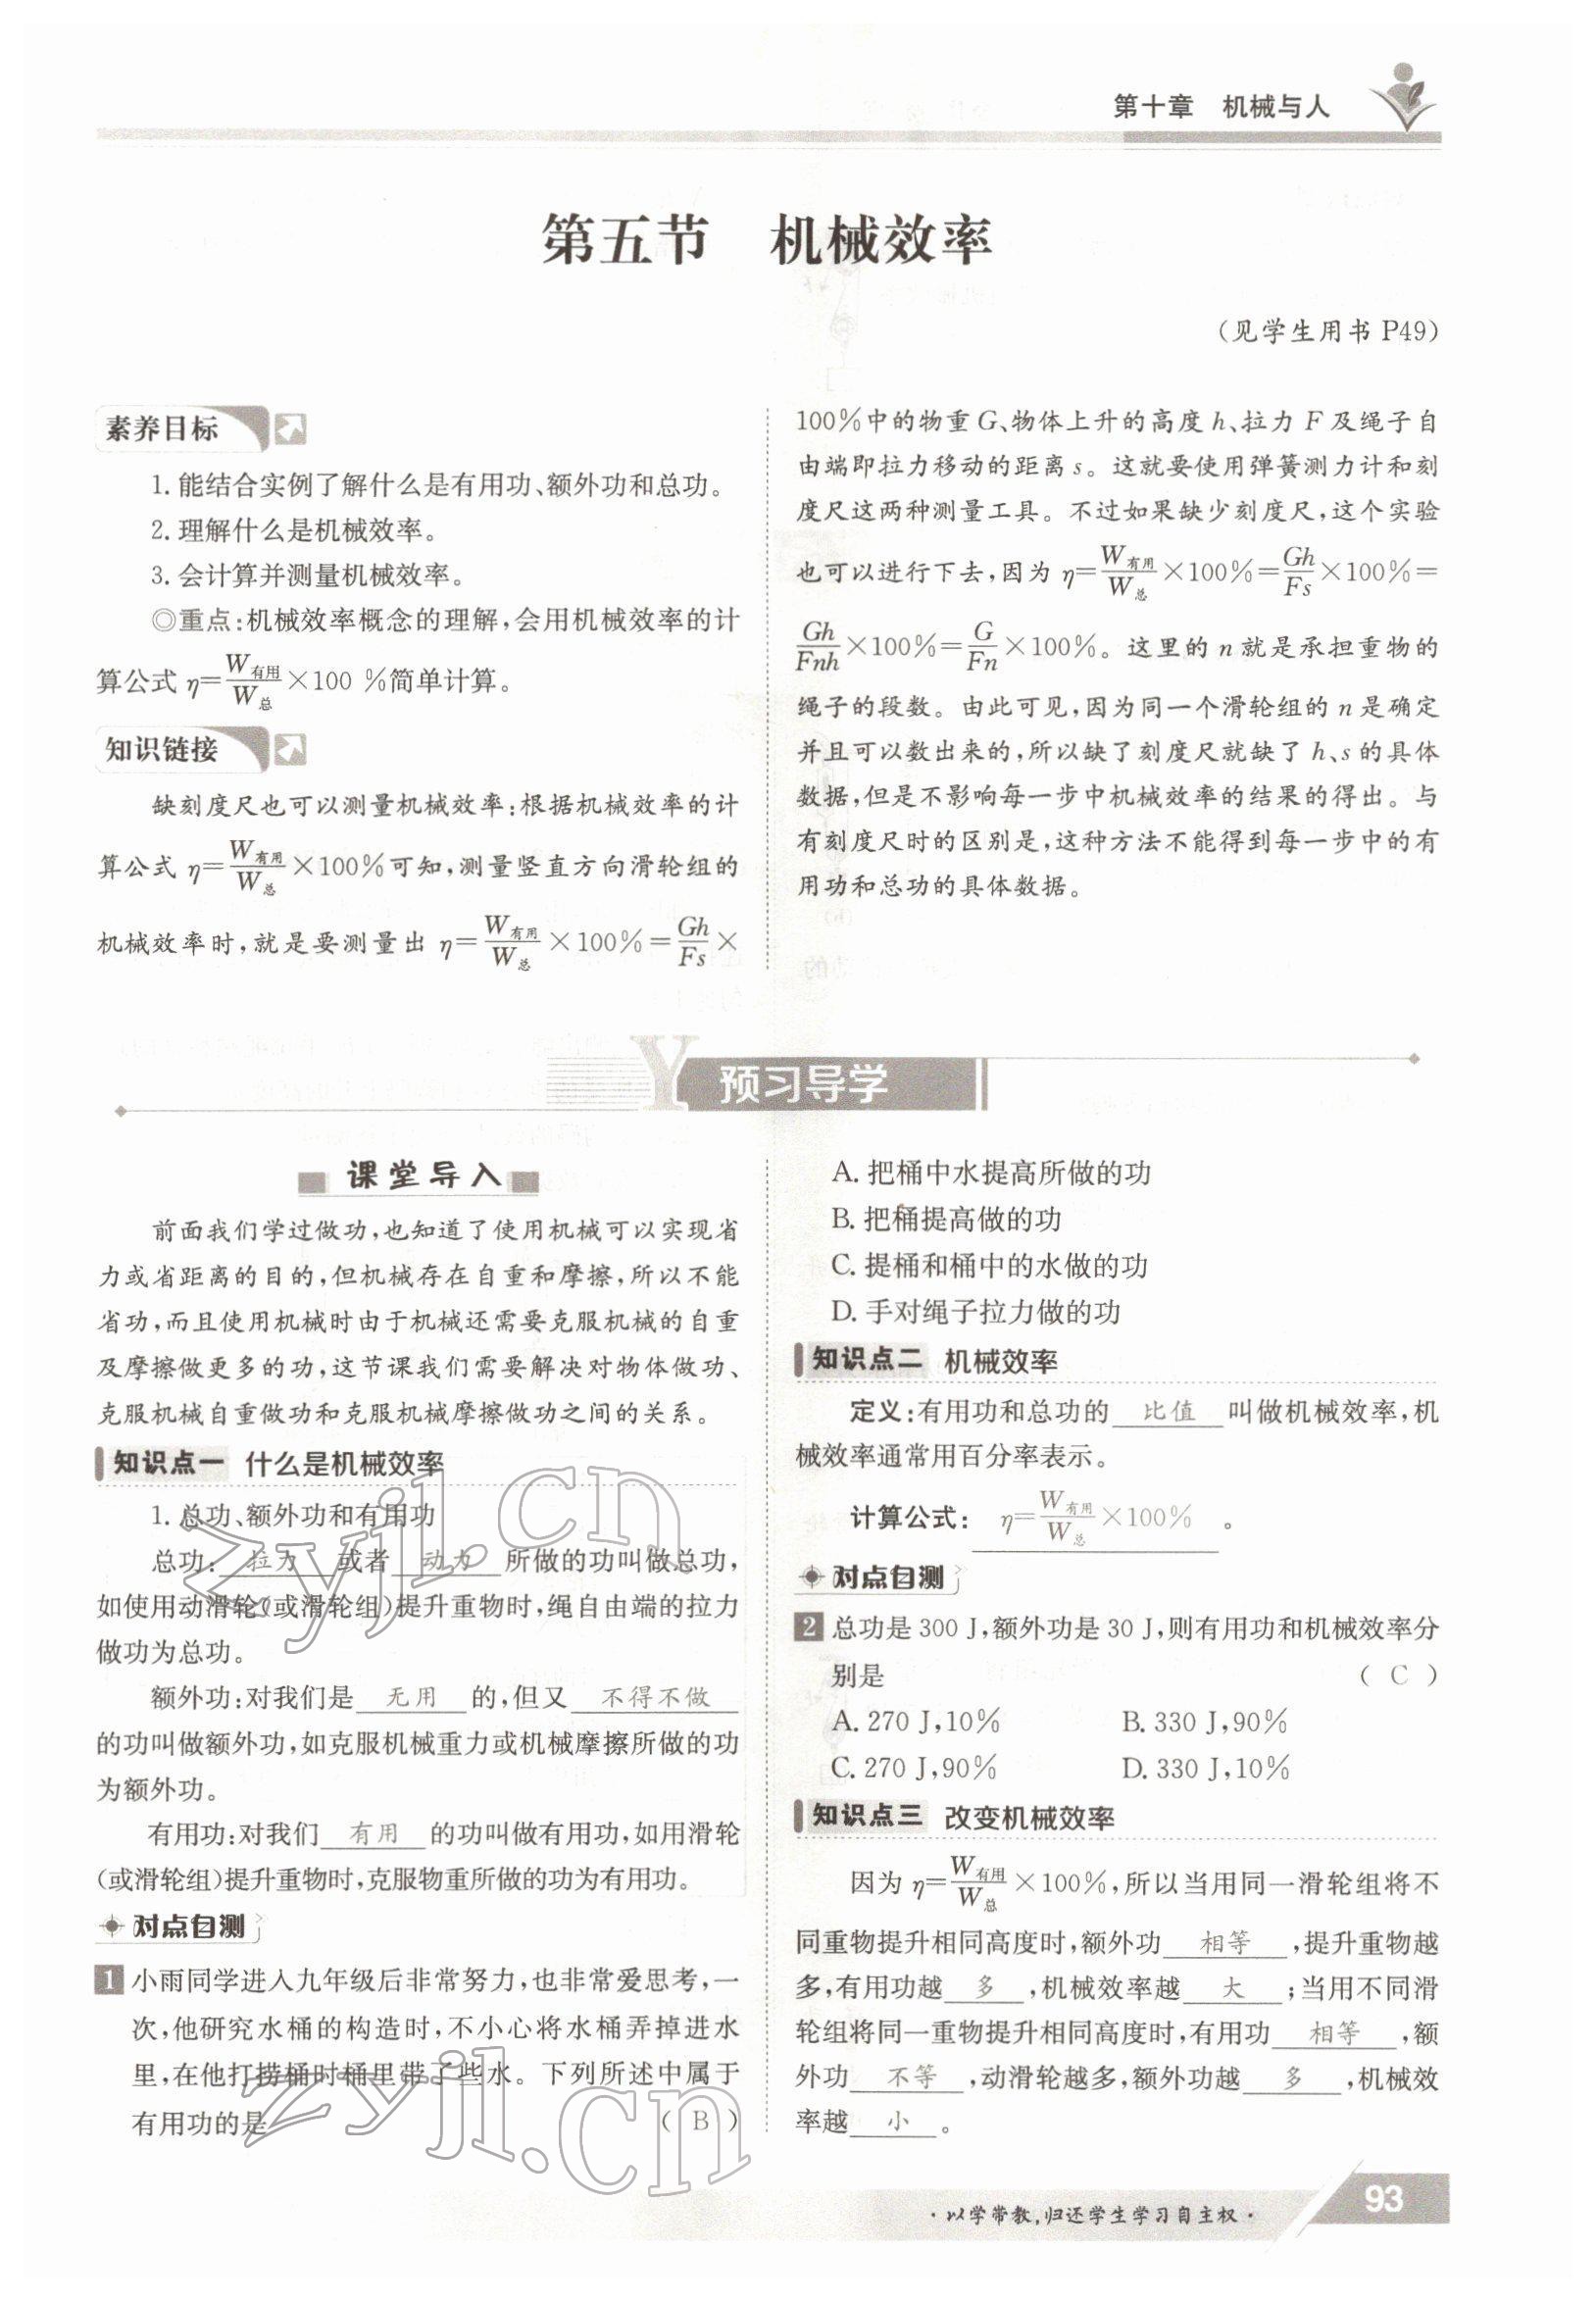 第十章 机械与人
第五节 机械效率
(见学生用书 P49)
素养目标
1. 能结合实例了解什么是有用功、额外功和总功。
2. 理解什么是机械效率。
3. 会计算并测量机械效率。
◎重点:机械效率概念的理解,会用机械效率的计
算公式 η=W有用/W总×100 %简单计算。
知识链接
缺刻度尺也可以测量机械效率:根据机械效率的计
算公式 η=W有用/W总×100%可知,测量竖直方向滑轮组的
机械效率时,就是要测量出 η=W有用/W总×100%=Gh/Fs×
100%中的物重 G、物体上升的高度 h、拉力 F 及绳子自
由端即拉力移动的距离 s。这就要使用弹簧测力计和刻
度尺这两种测量工具。不过如果缺少刻度尺,这个实验
也可以进行下去,因为 η=W有用/W总×100%=Gh/Fs×100%=
Gh/Fnh×100%=G/Fn×100%。这里的 n 就是承担重物的
绳子的段数。由此可见,因为同一个滑轮组的 n 是确定
并且可以数出来的,所以缺了刻度尺就缺了 h、s 的具体
数据,但是不影响每一步中机械效率的结果的得出。与
有刻度尺时的区别是,这种方法不能得到每一步中的有
用功和总功的具体数据。
Y 预习导学
课堂导入
前面我们学过做功,也知道了使用机械可以实现省
力或省距离的目的,但机械存在自重和摩擦,所以不能
省功,而且使用机械时由于机械还需要克服机械的自重
及摩擦做更多的功,这节课我们需要解决对物体做功、
克服机械自重做功和克服机械摩擦做功之间的关系。
知识点一 什么是机械效率
1. 总功、额外功和有用功
总功: 拉力 或者 动力 所做的功叫做总功,
如使用动滑轮(或滑轮组)提升重物时,绳自由端的拉力
做功为总功。
额外功:对我们是 无用 的,但又 不得不做
的功叫做额外功,如克服机械重力或机械摩擦所做的功
为额外功。
有用功:对我们 有用 的功叫做有用功,如用滑轮
(或滑轮组)提升重物时,克服物重所做的功为有用功。
对点自测
1 小雨同学进入九年级后非常努力,也非常爱思考,一
次,他研究水桶的构造时,不小心将水桶弄掉进水
里,在他打捞桶时桶里带了些水。下列所述中属于
有用功的是 ( B )
A. 把桶中水提高所做的功
B. 把桶提高做的功
C. 提桶和桶中的水做的功
D. 手对绳子拉力做的功
知识点二 机械效率
定义:有用功和总功的 比值 叫做机械效率,机
械效率通常用百分率表示。
计算公式: η=W有用/W总×100% 。
对点自测
2 总功是 300 J,额外功是 30 J,则有用功和机械效率分
别是 ( C )
A. 270 J,10% B. 330 J,90%
C. 270 J,90% D. 330 J,10%
知识点三 改变机械效率
因为 η=W有用/W总×100%,所以当用同一滑轮组将不
同重物提升相同高度时,额外功 相等 ,提升重物越
多,有用功越 多 ,机械效率越 大 ;当用不同滑
轮组将同一重物提升相同高度时,有用功 相等 ,额
外功 不等 ,动滑轮越多,额外功越 多 ,机械效
率越 小 。
zyjl.cn
zyjl.cn
·以学带教,归还学生学习自主权·
93